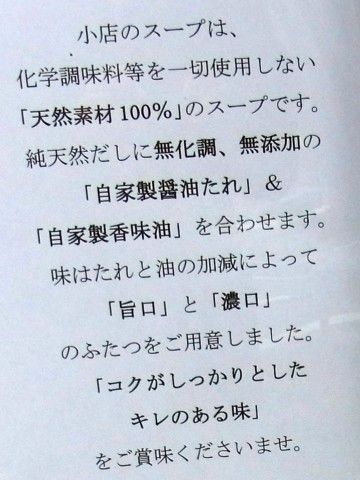 小店のスープは、
化学調味料等を一切使用しない
「天然素材100%」のスープです。
純天然だしに無化調、無添加の
「自家製醤油たれ」&
「自家製香味油」を合わせます。
味はたれと油の加減によって
「旨口」と「濃口」
のふたつをご用意しました。
「コクがしっかりとした
キレのある味」
をご賞味くださいませ。